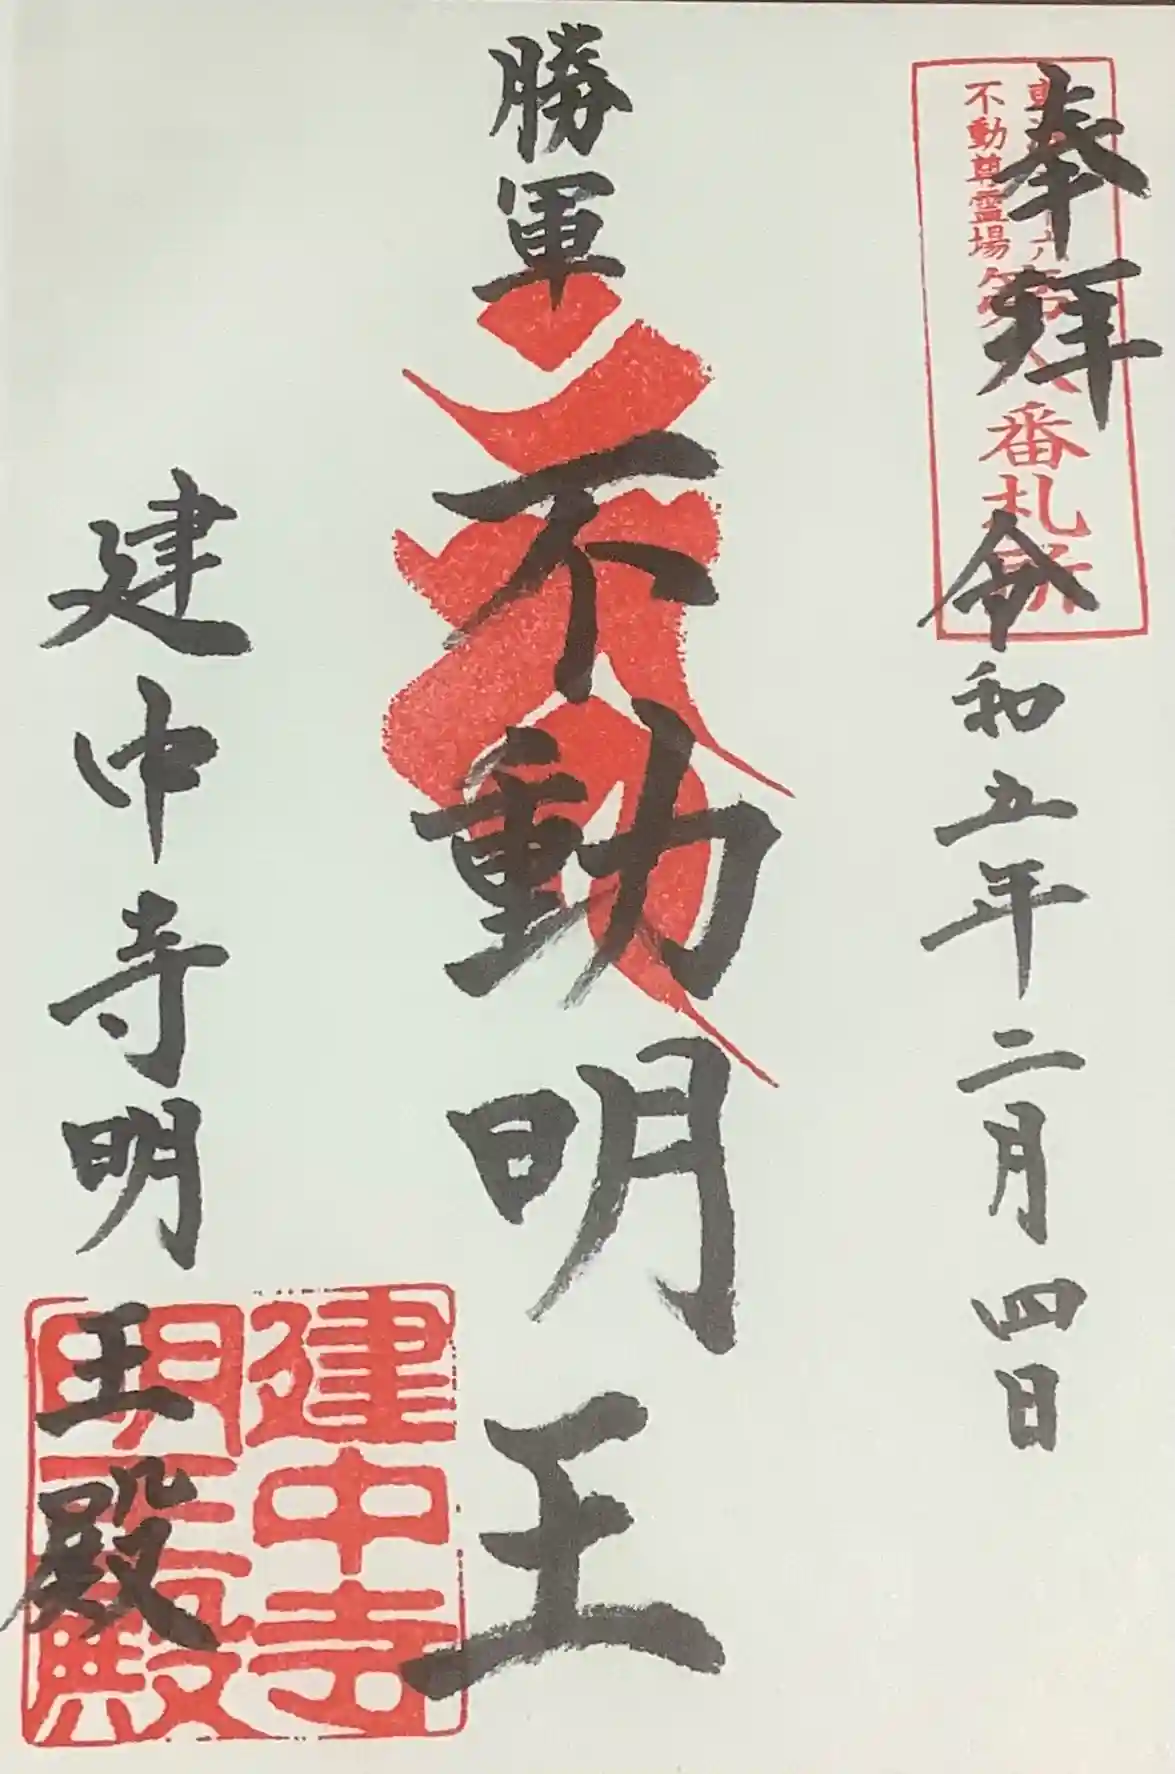 奉拝
令和五年二月四日
不動尊霊場
番札所
勝軍
不動明王
建中寺明王殿
建中寺
明王殿